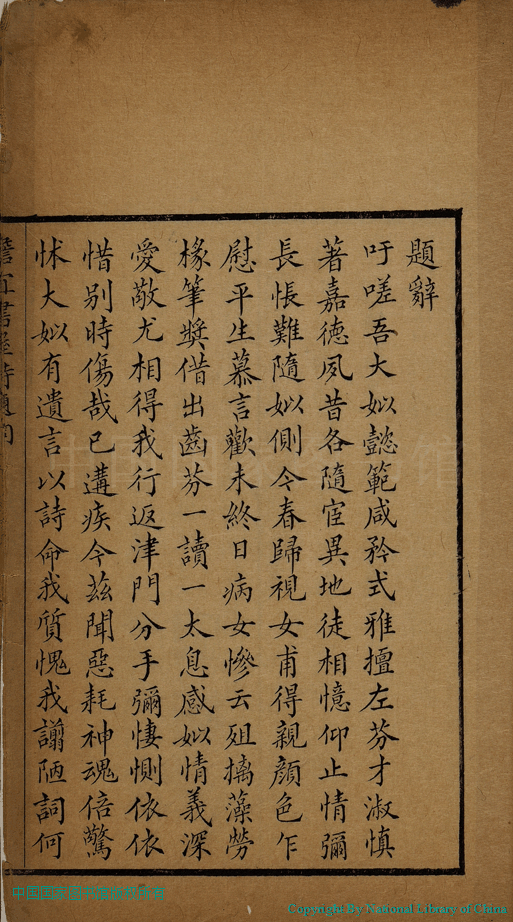 題辭
吁嗟吾大姒懿範咸矜式雅擅左芬才淑慎
著嘉德夙昔各隨宦異地徒相憶仰止情彌
長悵難隨姒側今春歸視女甫得親顏色乍
慰平生慕言歡未終日病女慘云殂摛藻勞
椽筆獎借出齒芬一讀一太息感姒情義深
愛敬尤相得我行返津門分手彌悽惻依依
惜別時傷哉已遘疾今茲聞惡耗神魂倍驚
怵大姒有遺言以詩命我質愧我譾陋詞何
書 詩題詞
中国国家图书馆
Copyright By National Library of China